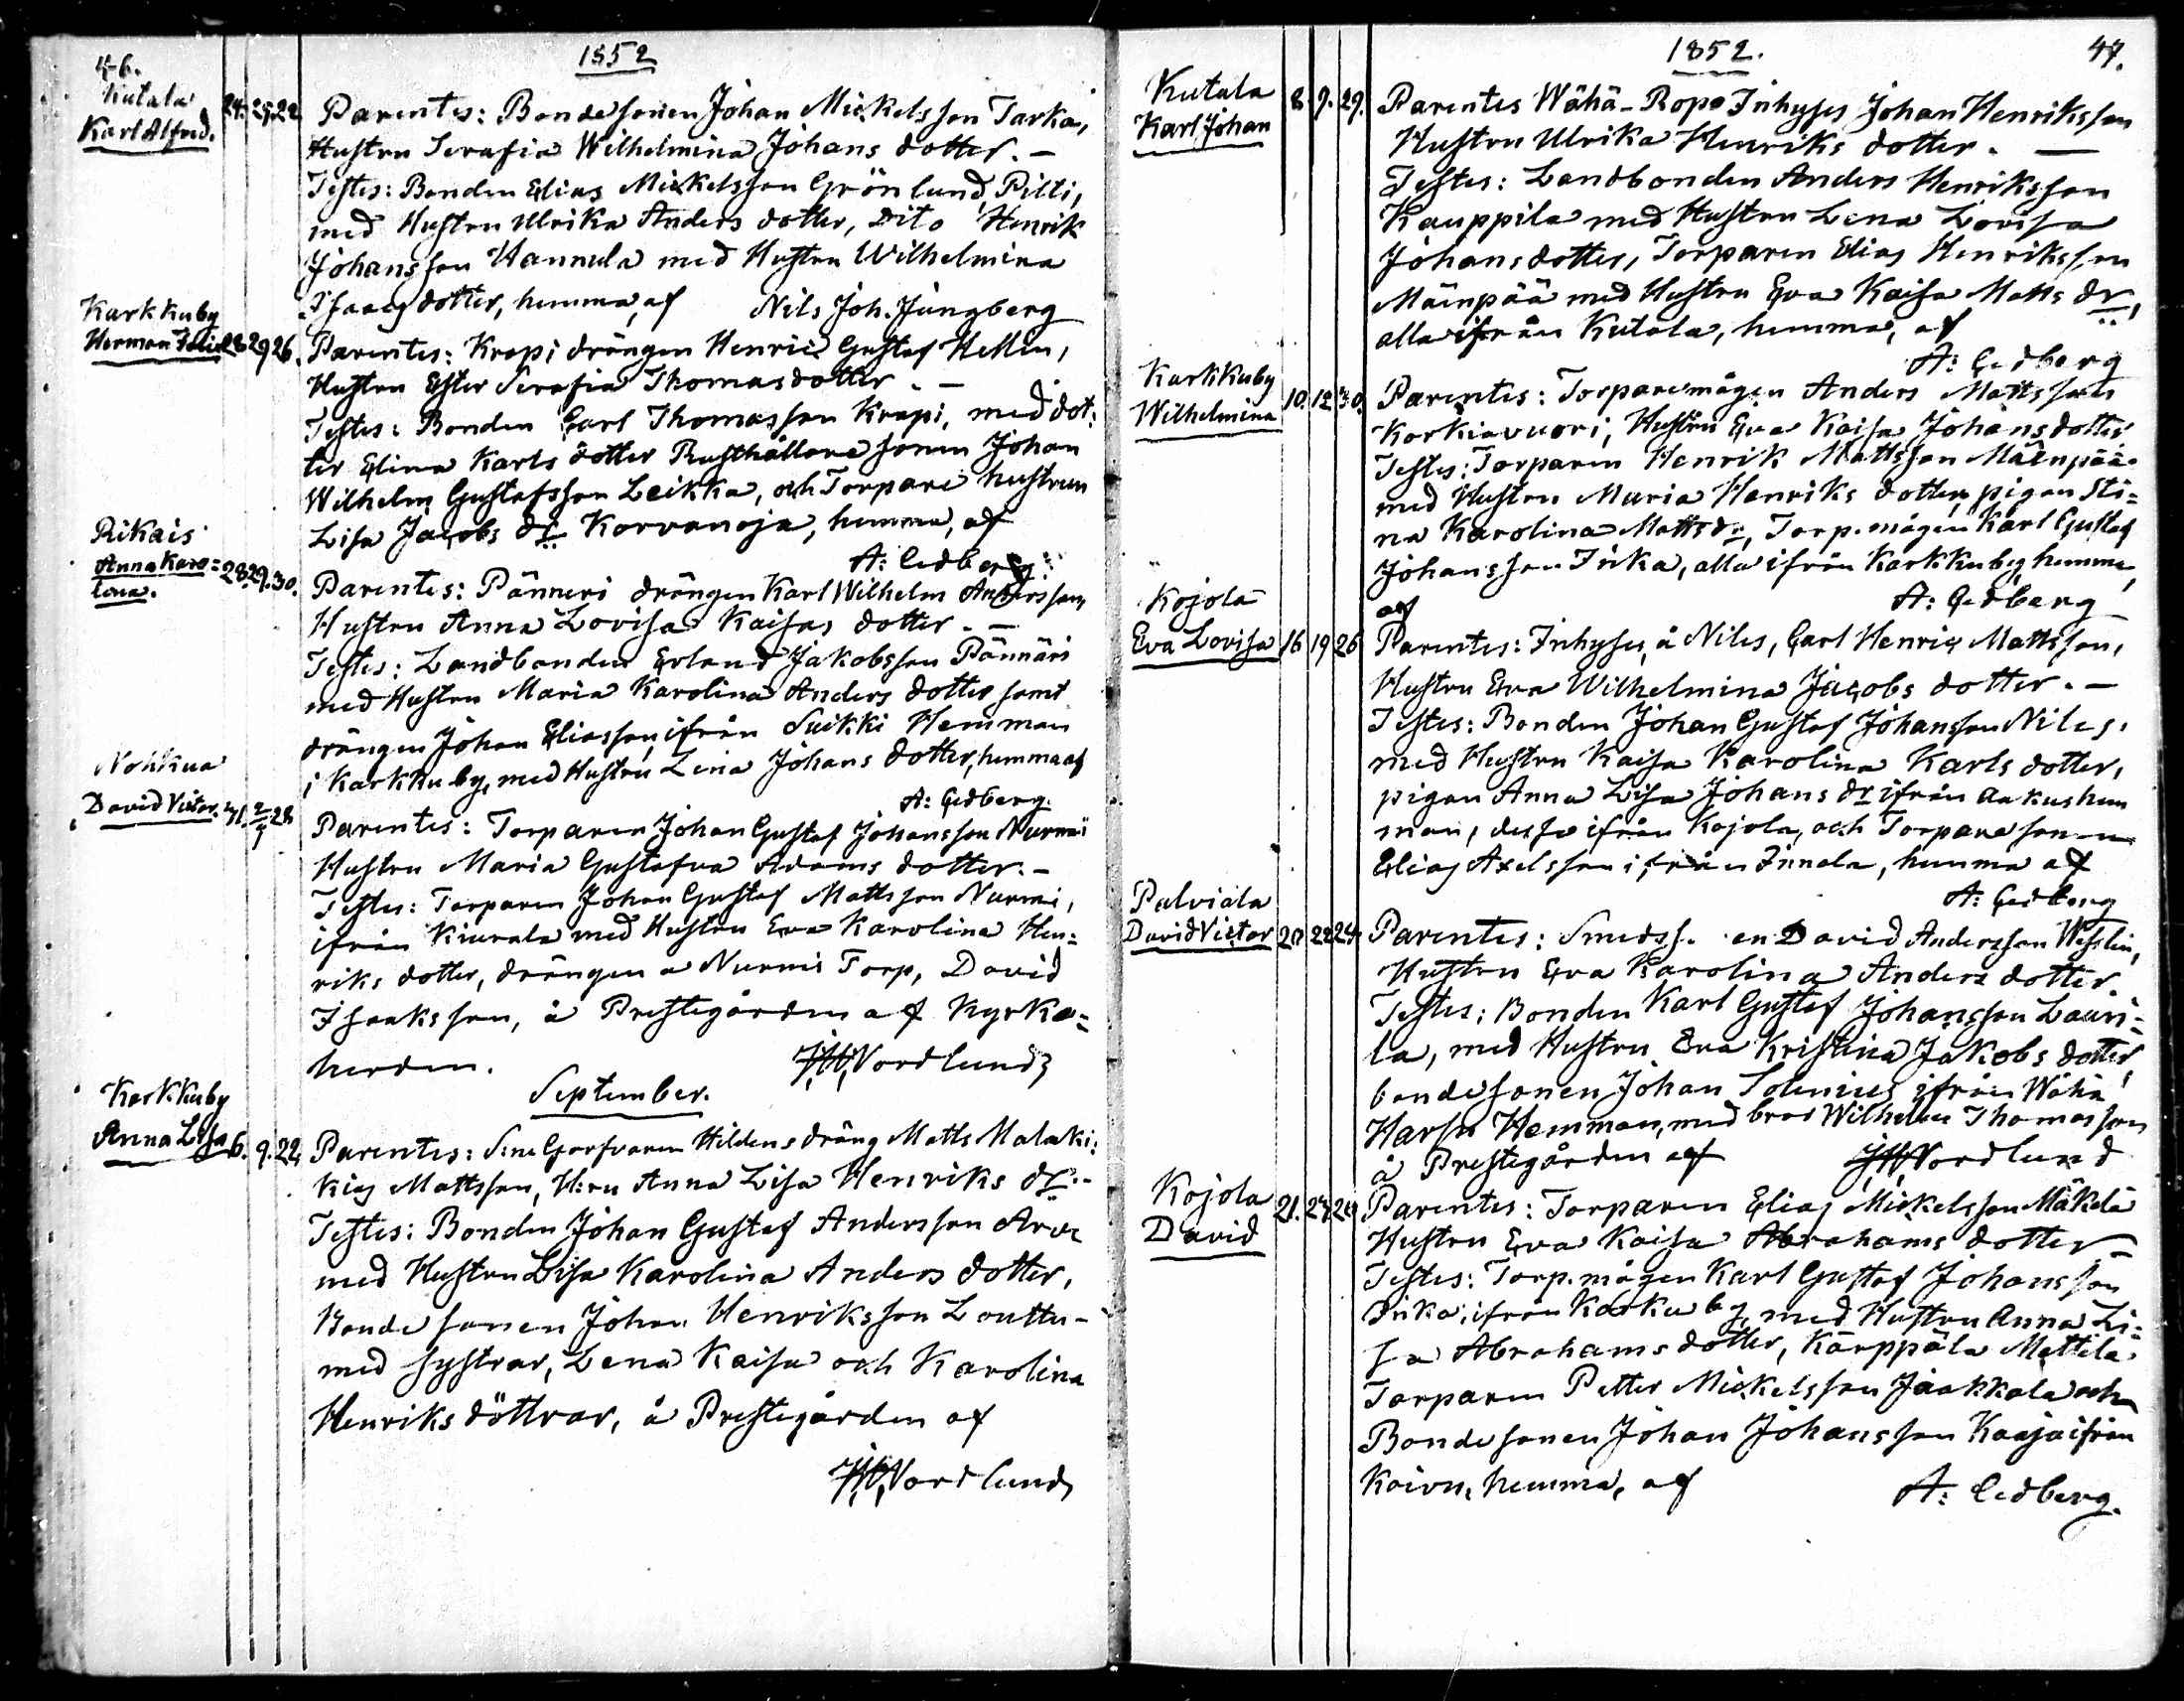 46.
1852
Kutala
Karl Alfred.
24. 25. 22
Parentes: Bondesonen Johan Mickelsson Tarka,
Hustru Serafia Wilhelmina Johans dotter. -
Testes: Bonden Elias Mickelsson Grönlund, Pilli,
med Hustru Ulrika Anders dotter, Dito Henrik
Johansson Hannula med Hustru Wilhelmina
Isaacs dotter, hemma, af Nils Joh. Jungberg
Karkkuby
Herman
28 29 26.
Parentes: Krapi drängen Henric Gustaf Hellen,
Hustru Ester Serafia Thomasdotter. -
Testes: Bonden Carl Thomasson Krapi, med dot:
ter Elina Karls dotter Rusthållare sonen Johan
Wilhelm Gustafsson Leikka, och Torpare hustrun
Lisa Jacobs dr Korvanoja, hemma, af
A: Cedberg.
Rikais
Anna Karo=
lina.
28. 29. 30.
Parentes: Pänneri drängen Karl Wilhelm Andersson,
Hustru Anna Lovisa Kaisas dotter. -
Testes: Landbonden Erland Jakobsson Pännäri
med Hustru Maria Karolina Anders dotter samt
drängen Johan Eliasson, ifrån Suikki Hemman
i Karkkuby, med Hustru Lena Johans dotter, hemma af
A: Cedberg.
Nohkua
David Victor.
31. 2/9 28
Parentes: Torparen Johan Gustaf Johansson Nurmi
Hustru Maria Gustafva Adams dotter. -
Testes: Torparen Johan Gustaf Mattsson Nurmi,
ifrån Kiurala med Hustru Eva Karolina Hen=
riks dotter, drängen å Nurmis Torp, David
Isaaksson, å Prestegården af Kyrko=
herden. Nordlund
September.
Karkkuby
Anna Lisa
6. 9. 22,
Parentes: Hildens dräng Matts Malaki:
kias Mattsson, H:ru Anna Lisa Henriks dr. -
Testes: Bonden Johan Gustaf Andersson Arve
med Hustru Lisa Karolina Anders dotter,
Bonde sonen Johan Henriksson Louttu-
med systrar, Lena Kaisa och Karolina
Henriks döttrar, å Prestegården af
Nordlund
1852.
47.
Kutala
Karl Johan
8. 9. 29.
Parentes Wähä-Ropo Inhyses Johan Henriksson
Hustru Ulrika Henriks dotter. —
Testes: Landbonden Anders Henriksson
Kauppila med Hustru Lena Lovisa
Johansdotter, Torparen Elias Henriksson
Mäenpää med Hustru Eva Kaisa Matts dr,
alla ifrån Kutala, hemma, af
A: Cedberg
Karkkuby
Wilhelmina
10. 12 30.
Parentes: Torparemågen Anders Mattsson
Korkiavuori, Hustru Eva Kaisa Johans dotter
Testes: Torparen Henrik Mattsson Mäenpää
med Hustru Maria Henriks dotter, pigan Sti=
na Karolina Mattsdr, Torp. mågen Karl Gustaf
Johansson Inka, alla ifrån Karkkuby, hemma,
af A: Cedberg
Kojola
Eva Lovisa
16 19 26
Parentes: Inhyses å Niles, Carl Henric Mattsson,
Hustru Eva Wilhelmina Jacobs dotter. -
Testes: Bonden Johan Gustaf Johansson Niles,
med Hustru Kaisa Karolina Karls dotter,
pigan Anna Lisa Johans dr ifrån Aakus hem
man, dessa ifrån Kojola, och Torpare sonen
Elias Axelsson ifrån Innala, hemma af
A: Cedberg
Palviala
David Victor
20 22 24
Parentes: en David Andersson Wesslin,
Hustru Eva Karolina Anders dotter.
Testes: Bonden Karl Gustaf Johansson Lauri=
la, med Hustru Eva Kristina Jakobs dotter,
bonde sonen Johan ifrån Wähä
Harsu Hemman, med bror Wilhelm Thomasson
å Prestegården af Nordlund
Kojola
David
21. 24 24
Parentes: Torparen Elias Mickelsson Mäkelä
Hustru Eva Kaisa Abrahams dotter -
Testes: Torp. mågen Karl Gustaf Johansson
Inka, ifrån Karkuby, med Hustru Anna Li=
sa Abrahams dotter, Kärppälä Mattila
Torparen Petter Mickelsson Jaakkola och
Bonde sonen Johan Johansson Kaaja ifrån
Koivu, hemma, af A: Cedberg.